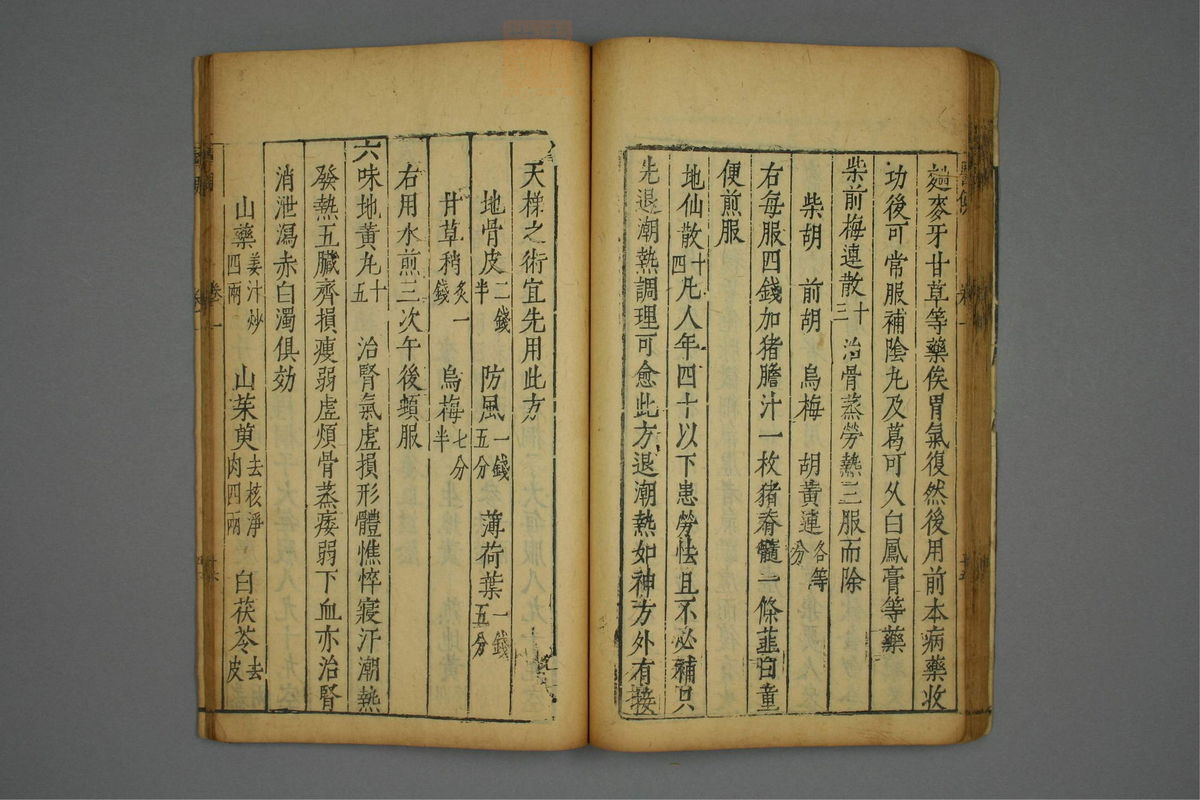 麯麥牙甘草等藥俟胃氣復然後用前本病藥收
功後可常服補陰丸及葛可久白鳳膏等藥
柴前梅連散十三 治骨蒸勞熱三服而除
柴胡 前胡 烏梅 胡黃連各等分
右每服四錢加猪膽汁一枚猪脊髓一條韮白童
便煎服
地仙散十四 凡人年四十以下患勞怯且不必補只
先退潮熱調理可愈此方退潮熱如神方外有接
天梯之術宜先用此方
地骨皮二錢半 防風一錢五分 薄荷葉一錢五分
甘草稍炙一錢 烏梅七分半
右用水煎三次午後頓服
六味地黃丸十五 治腎氣虛損形體憔悴寢汗潮熱
發熱五臟齊損瘦弱虛煩骨蒸痿弱下血亦治腎
消泄瀉赤白濁俱効
山藥姜汁炒四兩 山茱萸去核淨肉四兩 白茯苓去皮
卷一